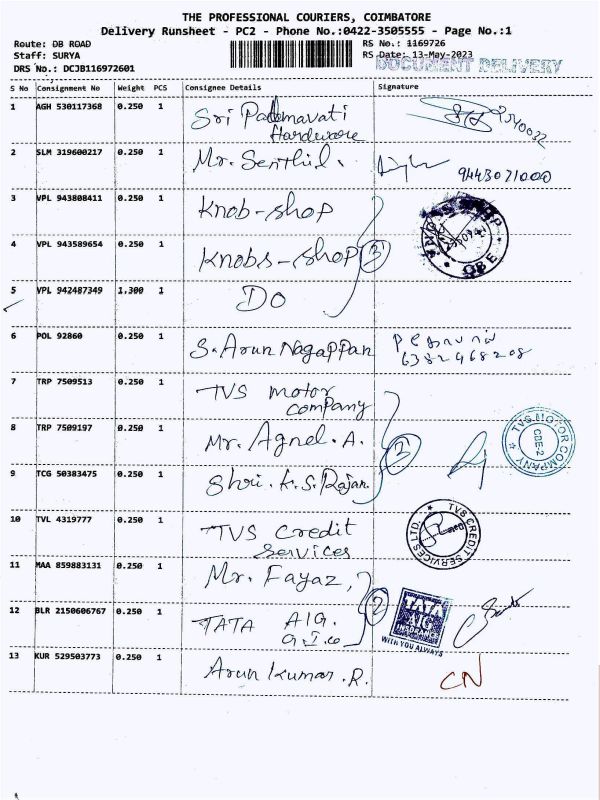 THE PROFESSIONAL COURIERS, COIMBATORE
Delivery Runsheet - PC2 - Phone No.:0422-3505555 - Page No.:1
Route: DB ROAD RS No.: 1169726
Staff: SURYA RS Date: 13-May-2023
DOCUMENT DELIVERY
DRS No.: DCJB116972601
S No Consignment No Weight PCS Consignee Details Signature
1 AGH 530117368 0.250 1 Sri Padmavati
Hardware
2 SLM 319600217 0.250 1 Mr. Senthil. 9443071000
3 VPL 943808411 0.250 1 Knob-shop
4 VPL 943589654 0.250 1 Knobs-shop 3
5 VPL 942487349 1.300 1 DO
6 POL 92860 0.250 1 S. Arun Nagappan
6382468208
7 TRP 7509513 0.250 1 TVS motor
company
8 TRP 7509197 0.250 1 Mr. Agnel. A.
TVS MOTOR COMPANY
CBE-2
9 TCG 50383475 0.250 1 Shri. K. S. Rajan.
10 TVL 4319777 0.250 1 TVS Credit
Services
TVS CREDIT SERVICES LTD.
11 MAA 859883131 0.250 1 Mr. Fayaz,
12 BLR 2150606767 0.250 1 TATA AIG.
G.I.co
2
TATA
AIG
WITH YOU ALWAYS
13 KUR 529503773 0.250 1 Arun Kumar. R. CN